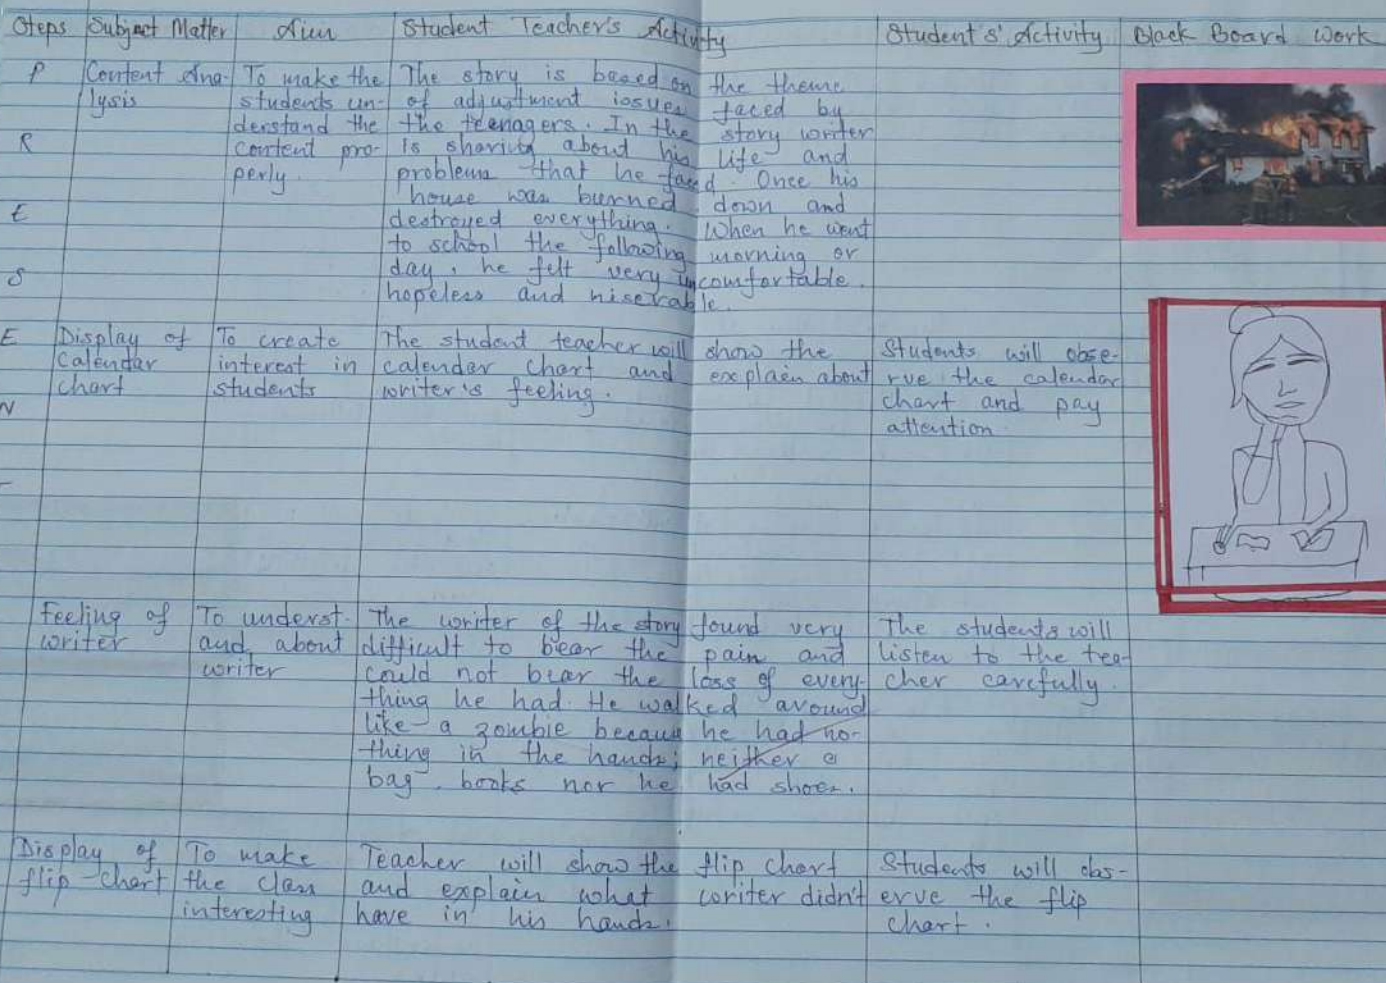 Steps Subject Matter Aim Student Teacher's Activity Students' Activity Black Board Work
P
R
E
S
E
N
Content Ana-
lysis
To make the
students un-
derstand the
content pro-
perly.
The story is based on the theme
of adjustment issues faced by
the teenagers. In the story writer
is sharing about his life and
problems that he faced. Once his
house was burned down and
destroyed everything. When he went
to school the following morning or
day, he felt very uncomfortable,
hopeless and miserable.
Display of
Calendar
chart
To create
interest in
students
The student teacher will show the
calendar chart and explain about
writer's feeling.
Students will obse-
rve the calendar
chart and pay
attention.
Feeling of
writer
To underst-
and about
writer
The writer of the story found very
difficult to bear the pain and
could not bear the loss of every-
thing he had. He walked around
like a zombie because he had no-
thing in the hands; neither a
bag, books nor he had shoes.
The students will
listen to the tea-
cher carefully.
Display of
flip chart
To make
the class
interesting
Teacher will show the flip chart
and explain what writer didn't
have in his hands.
Students will obs-
erve the flip
chart.